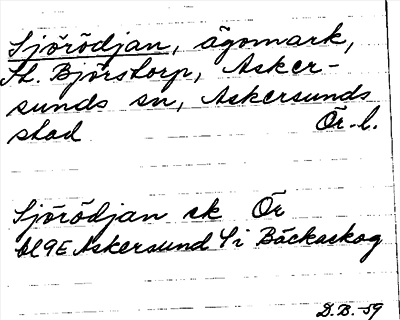 Sjörödjan, ägomark,
St. Björstorp, Asker-
sunds sn, Askersunds
stad Ör. l.
Sjörödjan sk Ör
bl 9E Askersund Si Bäckaskog
D.B. -59